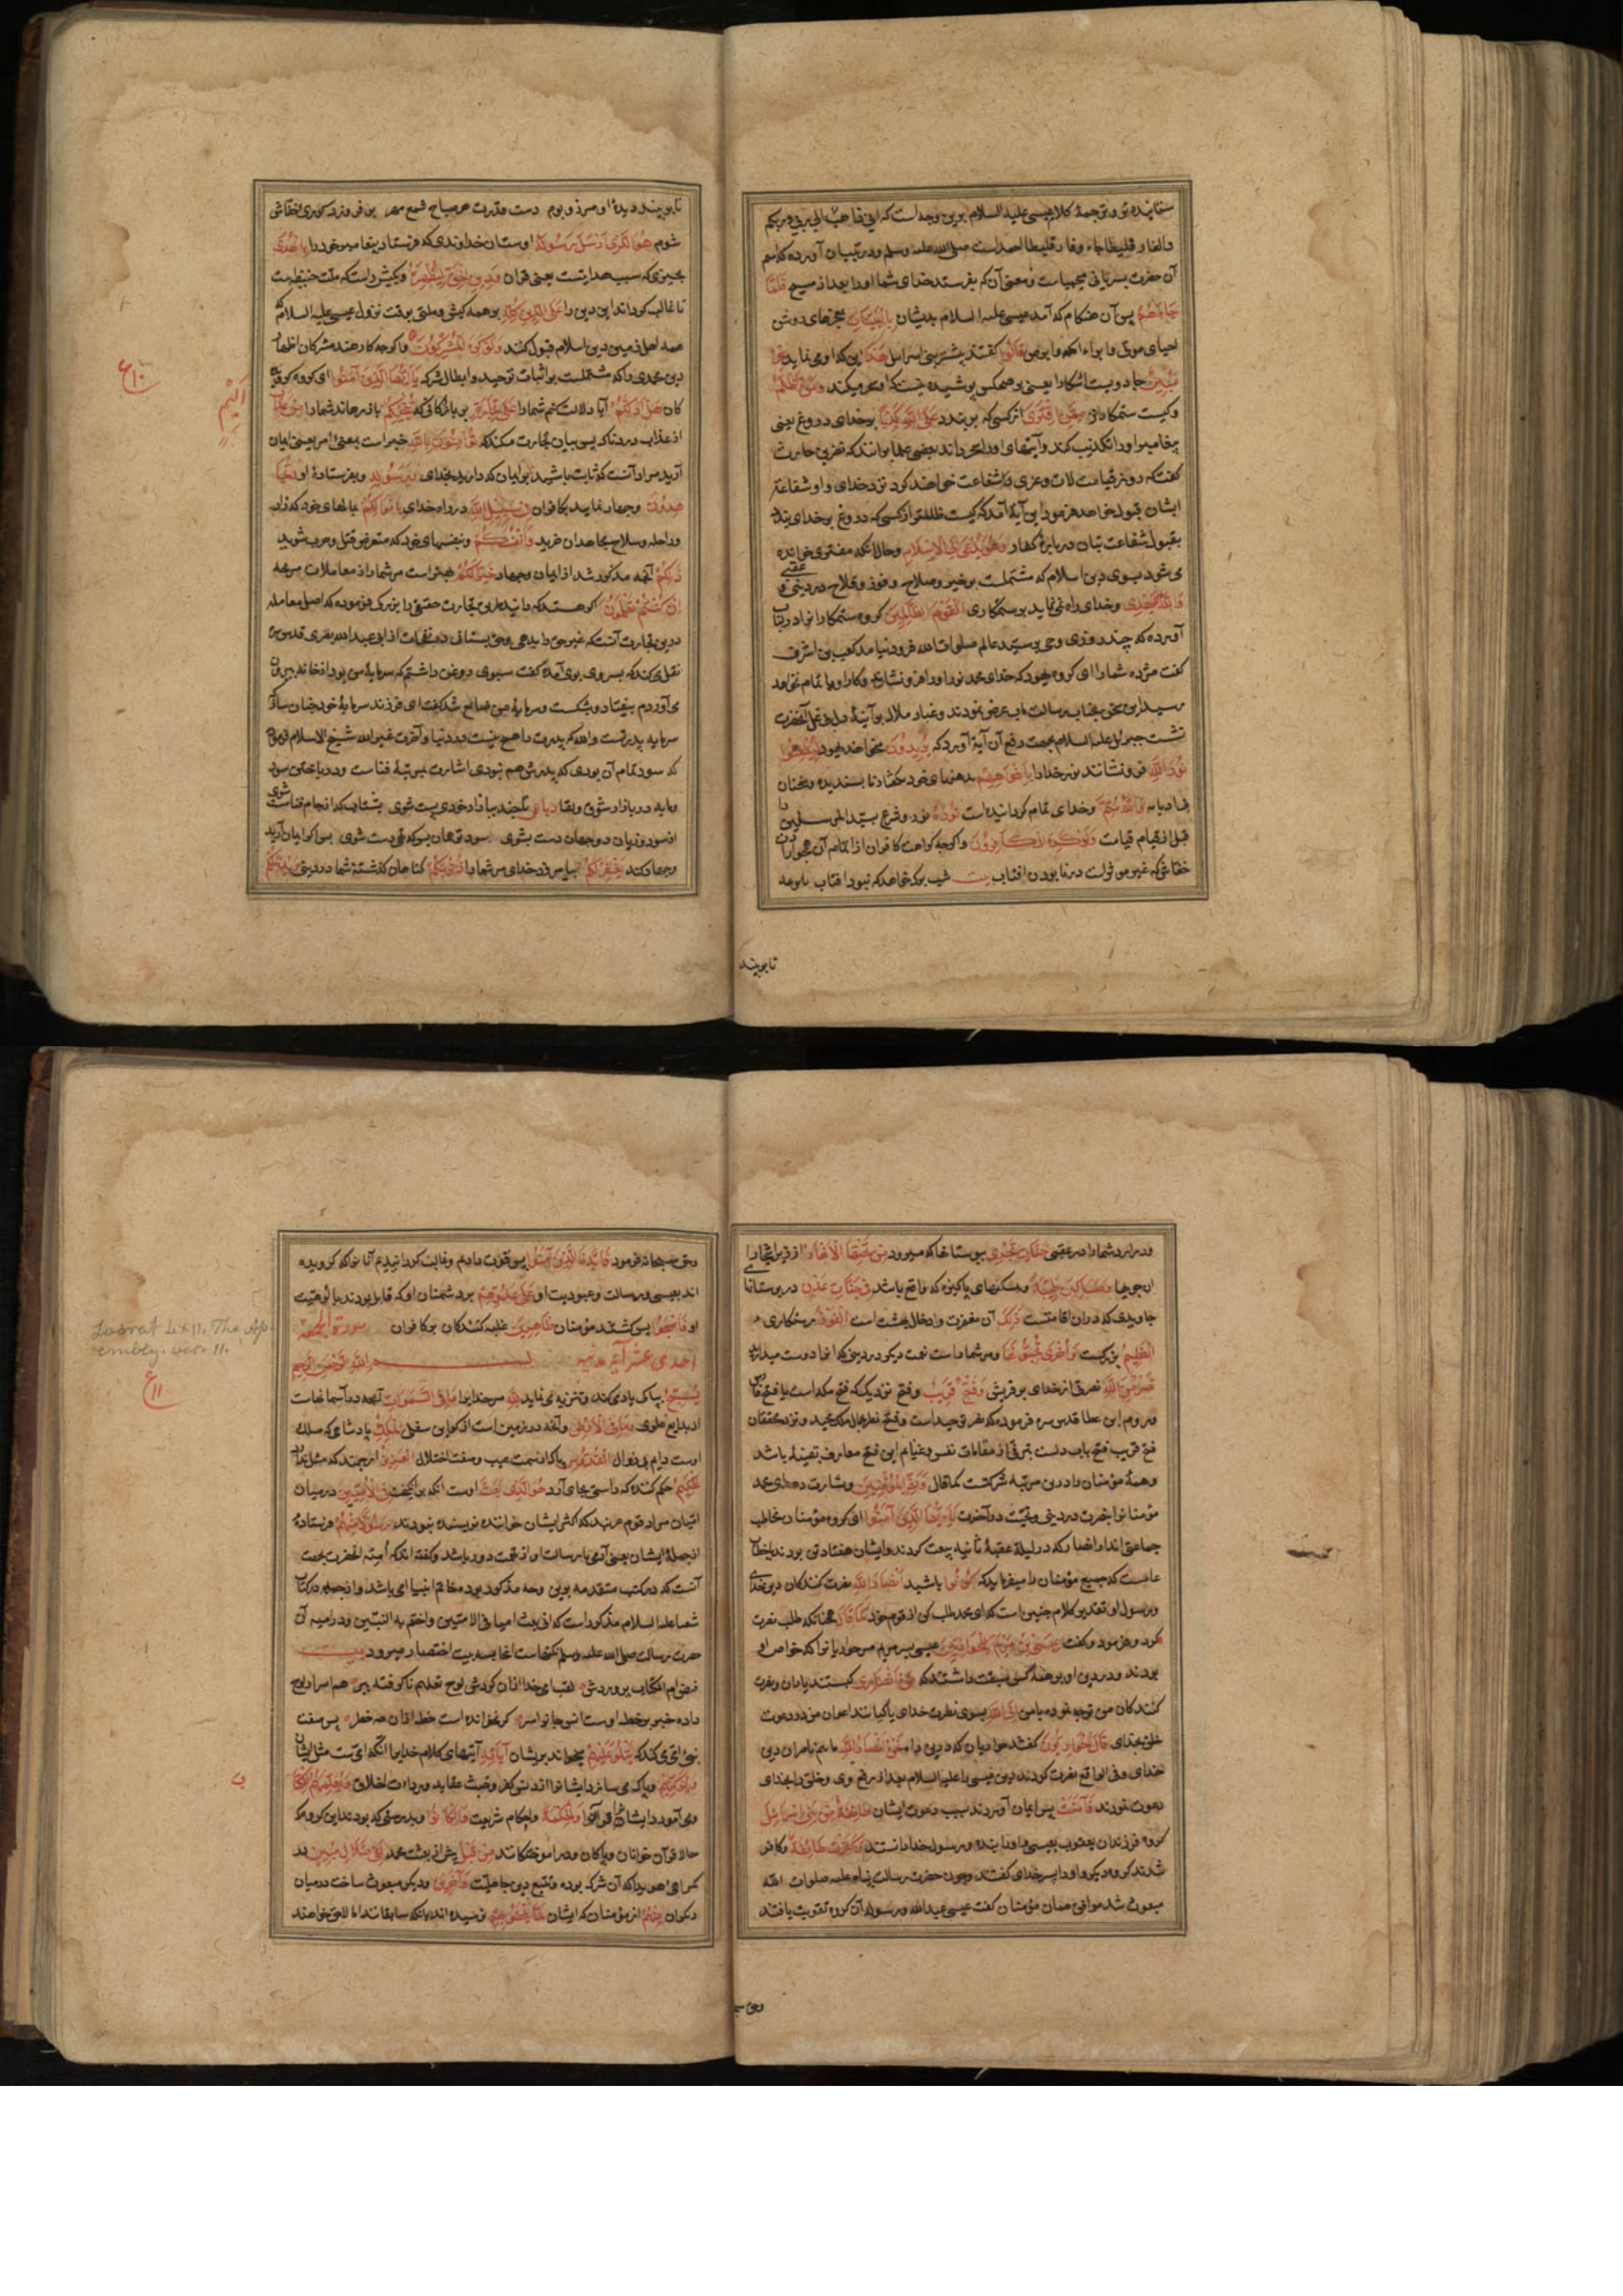 ستاینده و ترجمهٔ کلام عیسی علیه السلام بوین وجه است که انی ذاهب الی ربی و ربکم
والفار قلیطا جاء وفار قلیطا احمد است صلی الله علیه وسلم و در تبیان آورده که اسم
آن حضرت بسریانی و معنی آن که بفرستد خدای شما او را بعد از مسیح فَلَمَّا
جَاءَهُمْ پس آن هنکام که آمد عیسی علیه السلام بدیشان بِالْبَیِّنَاتِ بمعجزهای روشن
احیای موتی و ابراء اکمه و ابرص قَالُوا کفتند بنی اسرایل هٰذَا این که او می نماید سِحْرٌ
مُبِینٌ جادویست اشکارا یعنی بر همه کس پوشیده نیست که او سحر میکند وَمَنْ أَظْلَمُ
وکیست ستمکارتر مِمَّنِ افْتَرَیٰ از کسی که بربندد عَلَی اللهِ الْکَذِبَ بر خدای دروغ یعنی
پیغامبر او را تکذیب کند و آیتهای او را سحر داند
کفت که روز قیامت لات و عزی مرا شفاعت خواهند کرد نزد خدای و او شفاعت
ایشان قبول خواهد فرمود این آیة آمد که کیست ظالمتر از کسی که دروغ بر خدای بندد
بقبول شفاعت بتان در بارهٔ کفار وَهُوَ یُدْعَیٰ إِلَی الْإِسْلَامِ وحالانکه مفتری خوانده
می شود بسوی دین اسلام که مشتملست بر خیر و صلاح و فوز و فلاح در دینی و عقبی
وَاللهُ لَا یَهْدِی وخدای راه نمی نماید برستکاری الْقَوْمَ الظَّالِمِینَ کروه ستمکارانرا
آورده که چند روزی وحی بر سید عالم صلوات الله فرود نیامد کعب بن اشرف
کفت مژده شما را ای کروه یهود که خدای محمد نور او را فرو نشانید و کار او را تمام نخواهد
رسید این سخن بجناب رسالت مآب عرض نمودند و غبار ملال بر آینهٔ دل
نشست جبریل علیه السلام بجهت دفع آن آیة آورد که یُرِیدُونَ میخواهند یهود لِیُطْفِئُوا
نُورَ اللهِ فرو نشانند نور خدا را بِأَفْوَاهِهِمْ بدهنهای خود بکفتار ناپسندیده و سخنان
بی ادبانه وَاللهُ مُتِمُّ وخدای تمام کرداننده است نُورِهِ نور و شرع سید المرسلین را
قبل از قیام قیامت وَلَوْ کَرِهَ الْکَافِرُونَ واکرچه کراهت کافران از اتمام آن
خفاش که غیر موثرست در نابودن افتاب بیت شب پرک خواهد که نبود افتاب
تا بوبیند
تا بوبیند دیدهٔ او مرز و بوم دست قدرت هر صباح شمع مهر بر فروزد
شوم هُوَ الَّذِی أَرْسَلَ رَسُولَهُ اوست ان خداوندی که فرستاد پیغامبر خود را بِالْهُدَیٰ
بچیزی که سبب هدایتست یعنی قران وَدِینِ الْحَقِّ لِیُظْهِرَهُ وبکیش راست که ملت حنیفیه است
تا غالب کرداند این دین را عَلَی الدِّینِ کُلِّهِ بر همه کیش و ملتی بوقت نزول عیسی علیه السلام که
همه اهل زمین دین اسلام قبول کنند وَلَوْ کَرِهَ الْمُشْرِکُونَ واکرچه کاره هستند مشرکان اظهار
دین محمدی را که مشتملست بر اثبات توحید و ابطال شرک یَا أَیُّهَا الَّذِینَ آمَنُوا ای کروه
هَلْ أَدُلُّکُمْ آیا دلالت کنم شما را عَلَیٰ تِجَارَةٍ بر بازرکانی که تُنْجِیکُمْ باز رهاند شما را مِنْ عَذَابٍ
أَلِیمٍ
از عذاب دردناک پس بیان تجارت میکند که تُؤْمِنُونَ بِاللهِ خبر است بمعنی امر یعنی ایمان
آرید مراد آنست که ثابت باشید بر ایمان که دارید بخدای وَرَسُولِهِ وبفرستادهٔ او وَتُجَا
هِدُونَ وجهاد نمایید با کافران فِی سَبِیلِ اللهِ در راه خدای بِأَمْوَالِکُمْ بمالهای خود که زاد
و راحله و سلاح مجاهدان خرید وَأَنْفُسِکُمْ وبنفسهای خود که متعرض قتل و حرب شوید
ذٰلِکُمْ آنچه مذکور شد از ایمان و جهاد خَیْرٌ لَکُمْ بهتر است مر شما را از معاملات
إِنْ کُنْتُمْ تَعْلَمُونَ اکر هستید که دانید این تجارت حقیقی را بزرکی فرموده که اصل معامله
درین تجارت آنست که غیر حق را بدهی و حق بستانی در نفحات از ابی عبد الله بصری قدس سره
نقل می کند که پسر وی بوی آمد و کفت سبوی روغن داشتم که سرمایهٔ من بود از خانه بیرون
می آوردم بیفتاد و بشکست و سرمایهٔ من ضایع شد کفت ای فرزند سرمایهٔ خود چنان ساز که
سرمایه پدر تست والله که پدرت را هیچ نیست در دنیا و آخرت غیر الله شیخ الاسلام فرموده
که سود تمام آن بودی که پدرش هم نبودی اشارت بمرتبهٔ فناست و در باختن سود
و مایه در بازار شوق و بقا رباعی تا چند ببازار خودی پست شوی بشتاب که از جام فنا مست شوی
از سود و زیان دو جهان دست بشوی سود تو همان بس که تهی دست شوی
و جهاد کنید یَغْفِرْ لَکُمْ تا بیامرزد خدای مر شما را ذُنُوبَکُمْ کناهان کذشتهٔ شما در دنیی وَیُدْخِلْکُمْ
ع ۱۰
و در ارد شما را در عقبی جَنَّاتٍ تَجْرِی ببوستانها که میرود مِنْ تَحْتِهَا الْأَنْهَارُ از زیر اشجار
ان جویها وَمَسَاکِنَ طَیِّبَةً وبمسکنهای پاکیزه که واقع باشد فِی جَنَّاتِ عَدْنٍ در بوستانها
جاویدی که دران اقامتست ذٰلِکَ آن مغفرت و ادخال بهشت است الْفَوْزُ رستکاری
الْعَظِیمُ بزرکست وَأُخْرَیٰ تُحِبُّونَهَا ومر شما راست نعمت دیکر در دینی که انرا دوست میدارید
نَصْرٌ مِنَ اللهِ نصرتی از خدای بر قریش وَفَتْحٌ قَرِیبٌ وفتح نزدیک که فتح مکه است یا فتح فارس
و روم ابن عطا قدس سره فرموده که نصر توحید است و فتح نظر بجمال ملک مجید و نزد محققان
فتح قریب فتح باب دلست بترقی از مقامات نفس و غنایم این فتح معارف یقینیه باشد
و همهٔ مؤمنان را درین مرتبه شرکتست کما قال وَبَشِّرِ الْمُؤْمِنِینَ وبشارت ده ای محمد
مؤمنانرا بنصرت در دینی و بجنت در آخرت یَا أَیُّهَا الَّذِینَ آمَنُوا ای کروه مؤمنان مخاطب
جماعتی اند از انصار که در لیلة عقبهٔ ثانیه بیعت کردند و ایشان هفتاد تن بودند یا خطاب
عامست که جمیع مؤمنان را میفرماید که کُونُوا باشید أَنْصَارَ اللهِ نصرت کنندکان دین خدای
و رسول او تقدیر کلام چنین است که ای محمد طلب کن از قوم خود کَمَا قَالَ همچنانکه طلب نصرت
کرد و فرمود و کفت عِیسَی بْنُ مَرْیَمَ لِلْحَوَارِیِّینَ عیسی پسر مریم مر حواریانرا که خواص او
بودند و در دین او بر همهٔ کس سبقت داشتند که مَنْ أَنْصَارِی کیستند یاران و نصرت
کنندکان من توجه نموده با من إِلَی اللهِ بسوی نصرت خدای
خلق بخدای قَالَ الْحَوَارِیُّونَ کفتند حواریان که در دین نَحْنُ أَنْصَارُ اللهِ ماییم ناصران دین
خدای و فی الواقع نصرت کردند دین عیسی را علیه السلام بعد از رفع وی و خلق را بخدای
دعوت نمودند فَآمَنَتْ پس ایمان آوردند بسبب دعوت ایشان طَائِفَةٌ مِنْ بَنِی إِسْرَائِیلَ
کروه از فرزندان یعقوب بعیسی و او را بنده و رسول خدا دانستند وَکَفَرَتْ طَائِفَةٌ وکافر
شدند کروه دیکر و او را پسر خدای کفتند و چون حضرت رسالت پناه علیه صلوات الله
مبعوث شد موافق همان مؤمنان کفت عیسی عبدالله و رسوله آن کروه تقویت یافتند
وحق سبحا
وحق سبحانه فرمود فَأَیَّدْنَا الَّذِینَ آمَنُوا پس قوت دادیم و غالب کردانیدیم آنانرا که کرویده
اند بعیسی و رسالت و عبودیت او عَلَیٰ عَدُوِّهِمْ بر دشمنان او که قایل بودند بالوهیت
او فَأَصْبَحُوا پس کشتند مؤمنان ظَاهِرِینَ غلبه کنندکان بر کافران سورة الجمعة
احدی عشر آیة مدنیة بسم الله الرحمن الرحیم
یُسَبِّحُ بپاکی یاد می کند و تنزیه می نماید لِلّٰهِ مر خدایرا مَا فِی السَّمٰوَاتِ آنچه در آسمانهاست
از بدایع علوی وَمَا فِی الْأَرْضِ وآنچه در زمین است از کواین سفلی الْمَلِکِ پادشاهی که ملک
اوست دایم بی زوال الْقُدُّوسِ پاک از سمت عیب و صفت اختلال الْعَزِیزِ ارجمند که مثل ندارد
الْحَکِیمِ حکم کننده که راستی بجای آرد هُوَ الَّذِی بَعَثَ اوست انکه برانکیخت فِی الْأُمِّیِّینَ در میان
امیان مراد قوم عربند که اکثر ایشان خواننده و نویسنده نبودند رَسُولًا مِنْهُمْ فرستادهٔ
از جملهٔ ایشان یعنی امی تا رسالت او از تهمت دور باشد و کفته اند که امیت انحضرت بجهت
آنست که در کتب متقدمه بوین وجه مذکور بود که خاتم انبیا امی باشد و از جمله در کتاب
شعیا علیه السلام مذکور است که انی ابعث امیا فی الامیین و اختم به النبیین و در امیه آن
حضرت رسالت صلی الله علیه وسلم نکتهاست اما به سه بیت اختصار میرود بیت
فیض ام الکتاب پروردش لقب امی خدا ازان کردش لوح تعلیم ناکرفته ببر هم ز اسرار لوح
داده خبر بر خط اوست انس و جانرا سر کر نخوانده است خط ازان چه خطر پس صفت
نبی امی می کند که یَتْلُو عَلَیْهِمْ میخواند بریشان آیَاتِهِ آیتهای کلام خدایرا با انکه امیست مثل ایشان
وَیُزَکِّیهِمْ وپاک می سازد ایشانرا از دنس کفر و خبث عقاید و رداءت اخلاق وَیُعَلِّمُهُمُ الْکِتَابَ
ومی آموزد ایشانرا قرآن وَالْحِکْمَةَ واحکام شریعت وَإِنْ کَانُوا وبدرستی که بودند این کروه که
حالا قرآن خوانان و پاکان و در اموختکانند مِنْ قَبْلُ پیش از بعثت محمد لَفِی ضَلَالٍ مُبِینٍ در
کمراهی هویدا که آن شرک بود و تتبع دین جاهلیت وَآخَرِینَ ودیکر مبعوث ساخت در میان
دیکران مِنْهُمْ از مؤمنان که ایشان لَمَّا یَلْحَقُوا بِهِمْ نرسیده اند بانکه سابقانند اما لاحق خواهند
Soorat LXII. The As-
sembly. ver. 11.
ع ۱۱